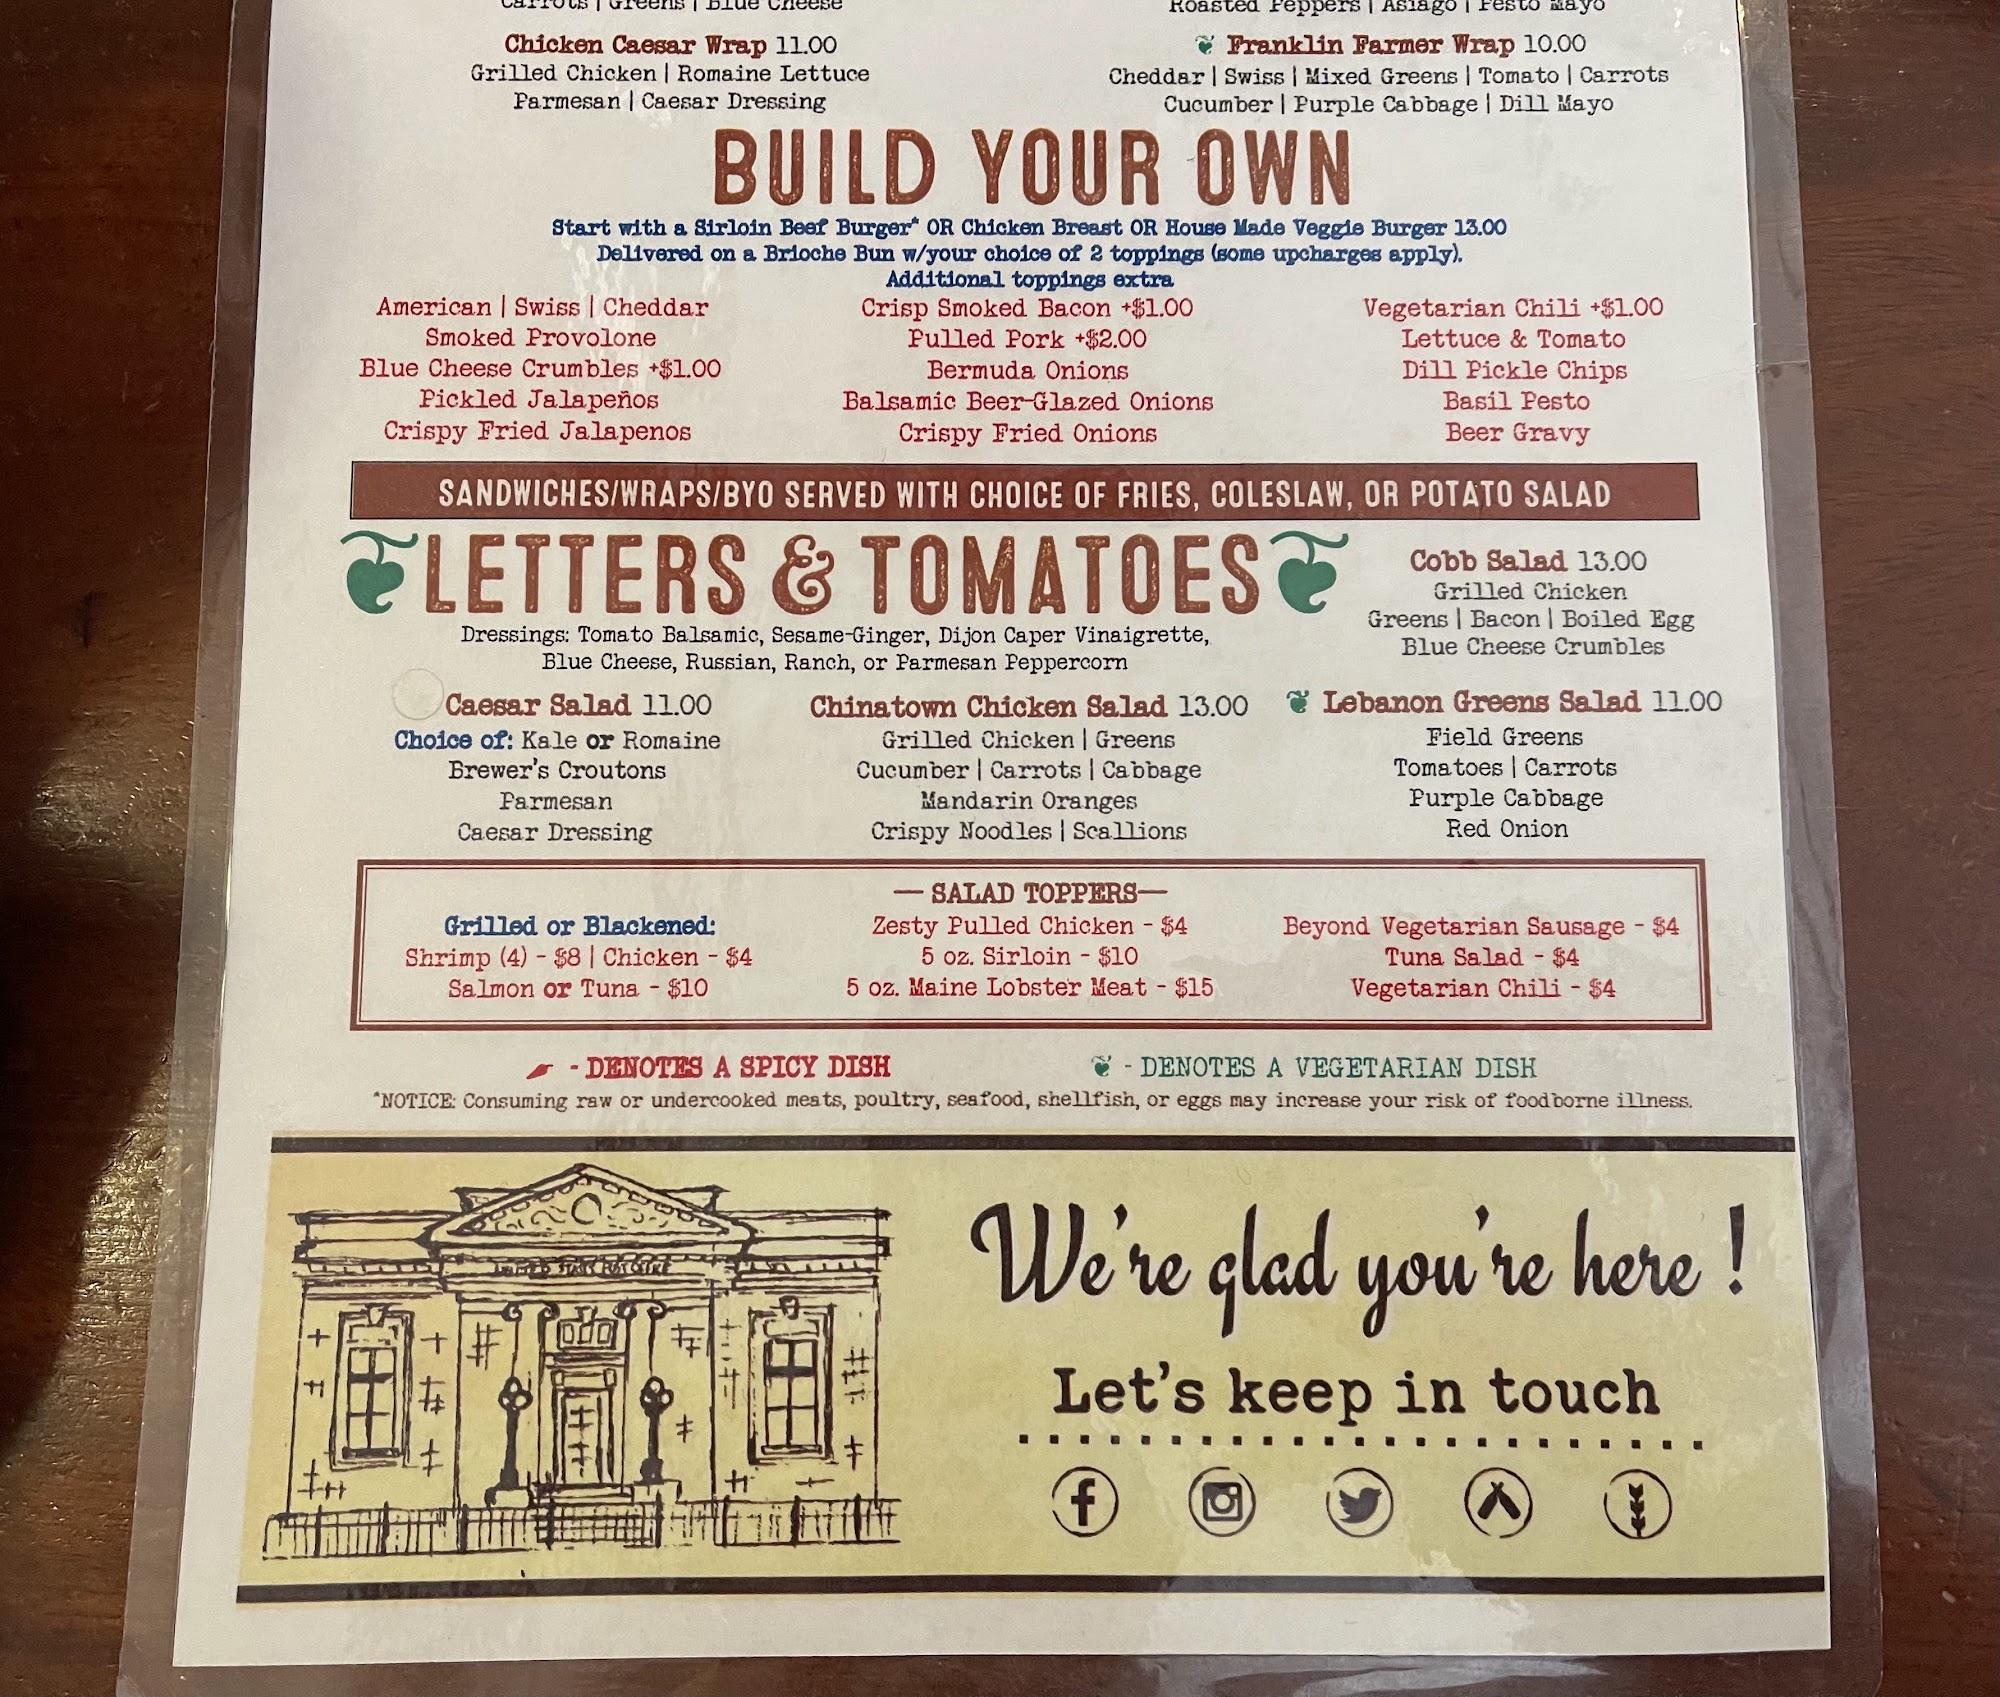 Carrots | Greens | Blue Cheese
Roasted Peppers | Asiago | Pesto Mayo
Chicken Caesar Wrap 11.00
Grilled Chicken | Romaine Lettuce
Parmesan | Caesar Dressing
Franklin Farmer Wrap 10.00
Cheddar | Swiss | Mixed Greens | Tomato | Carrots
Cucumber | Purple Cabbage | Dill Mayo
BUILD YOUR OWN
Start with a Sirloin Beef Burger* OR Chicken Breast OR House Made Veggie Burger 13.00
Delivered on a Brioche Bun w/your choice of 2 toppings (some upcharges apply).
Additional toppings extra
American | Swiss | Cheddar
Smoked Provolone
Blue Cheese Crumbles +$1.00
Pickled Jalapeños
Crispy Fried Jalapenos
Crisp Smoked Bacon +$1.00
Pulled Pork +$2.00
Bermuda Onions
Balsamic Beer-Glazed Onions
Crispy Fried Onions
Vegetarian Chili +$1.00
Lettuce & Tomato
Dill Pickle Chips
Basil Pesto
Beer Gravy
SANDWICHES/WRAPS/BYO SERVED WITH CHOICE OF FRIES, COLESLAW, OR POTATO SALAD
LETTERS & TOMATOES
Dressings: Tomato Balsamic, Sesame-Ginger, Dijon Caper Vinaigrette,
Blue Cheese, Russian, Ranch, or Parmesan Peppercorn
Cobb Salad 13.00
Grilled Chicken
Greens | Bacon | Boiled Egg
Blue Cheese Crumbles
Caesar Salad 11.00
Choice of: Kale or Romaine
Brewer's Croutons
Parmesan
Caesar Dressing
Chinatown Chicken Salad 13.00
Grilled Chicken | Greens
Cucumber | Carrots | Cabbage
Mandarin Oranges
Crispy Noodles | Scallions
Lebanon Greens Salad 11.00
Field Greens
Tomatoes | Carrots
Purple Cabbage
Red Onion
— SALAD TOPPERS—
Grilled or Blackened:
Shrimp (4) - $8 | Chicken - $4
Salmon or Tuna - $10
Zesty Pulled Chicken - $4
5 oz. Sirloin - $10
5 oz. Maine Lobster Meat - $15
Beyond Vegetarian Sausage - $4
Tuna Salad - $4
Vegetarian Chili - $4
- DENOTES A SPICY DISH
- DENOTES A VEGETARIAN DISH
*NOTICE: Consuming raw or undercooked meats, poultry, seafood, shellfish, or eggs may increase your risk of foodborne illness.
UNITED STATES POST OFFICE
We're glad you're here !
Let's keep in touch